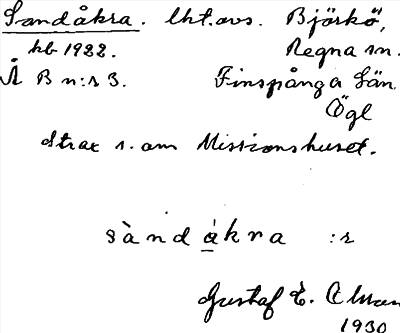 Sandåkra. lht. avs. Björkö,
kb 1922. Regna sn.
Å B n:r 3. Finspånga län
Ögl
strax s. om Missionshuset.
sàndåkra :r
Gustaf E.
1930